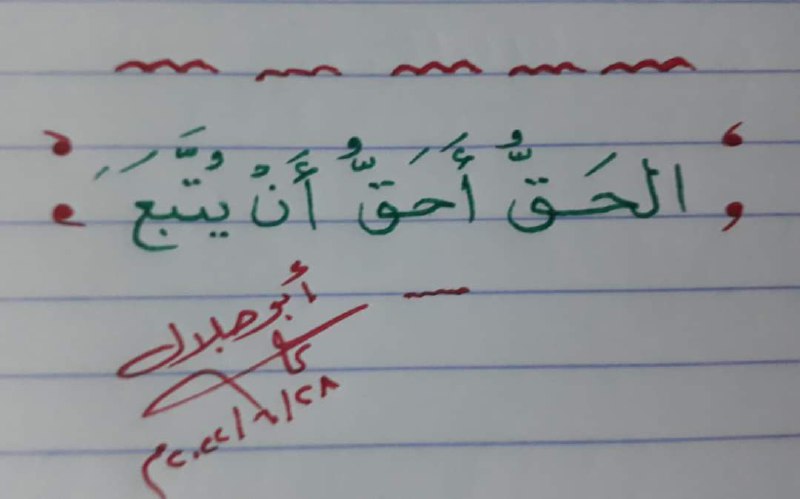 الحَقُّ أَحَقُّ أَنْ يُتَّبَعَ
أبو جلال
٢٠٢٢/٦/٢٨م